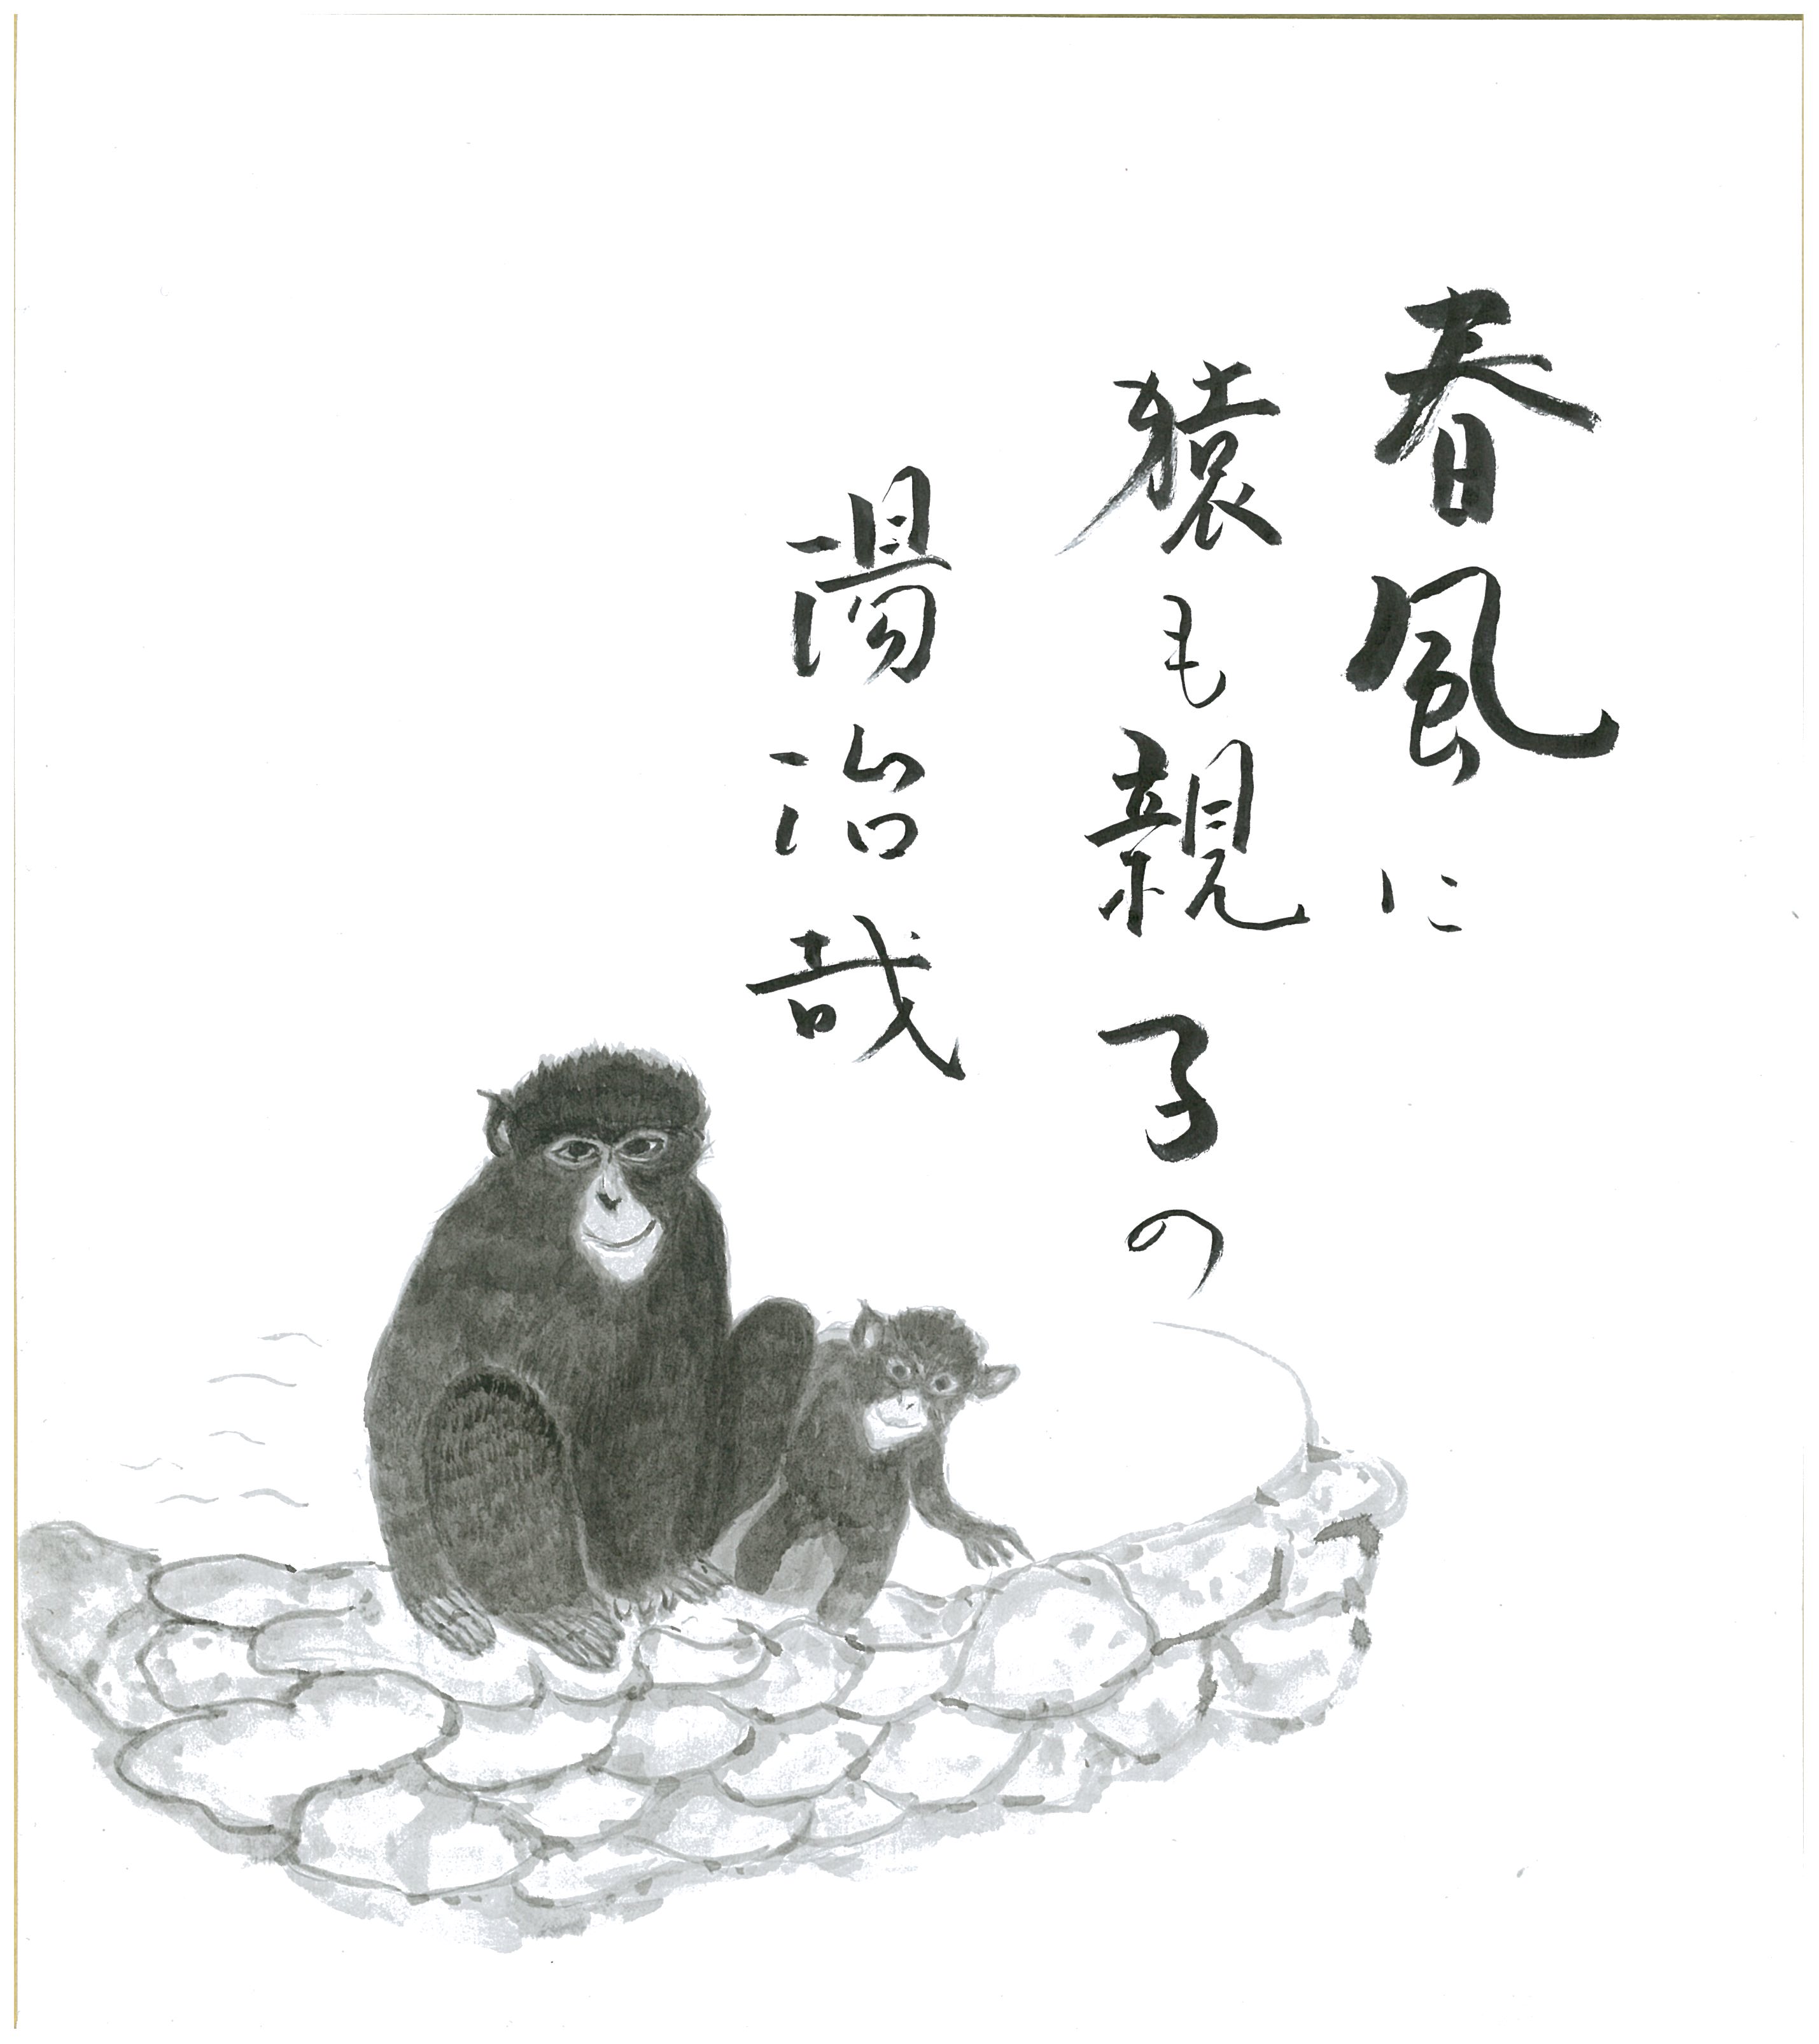 春風に
猿も親子の
湯治哉